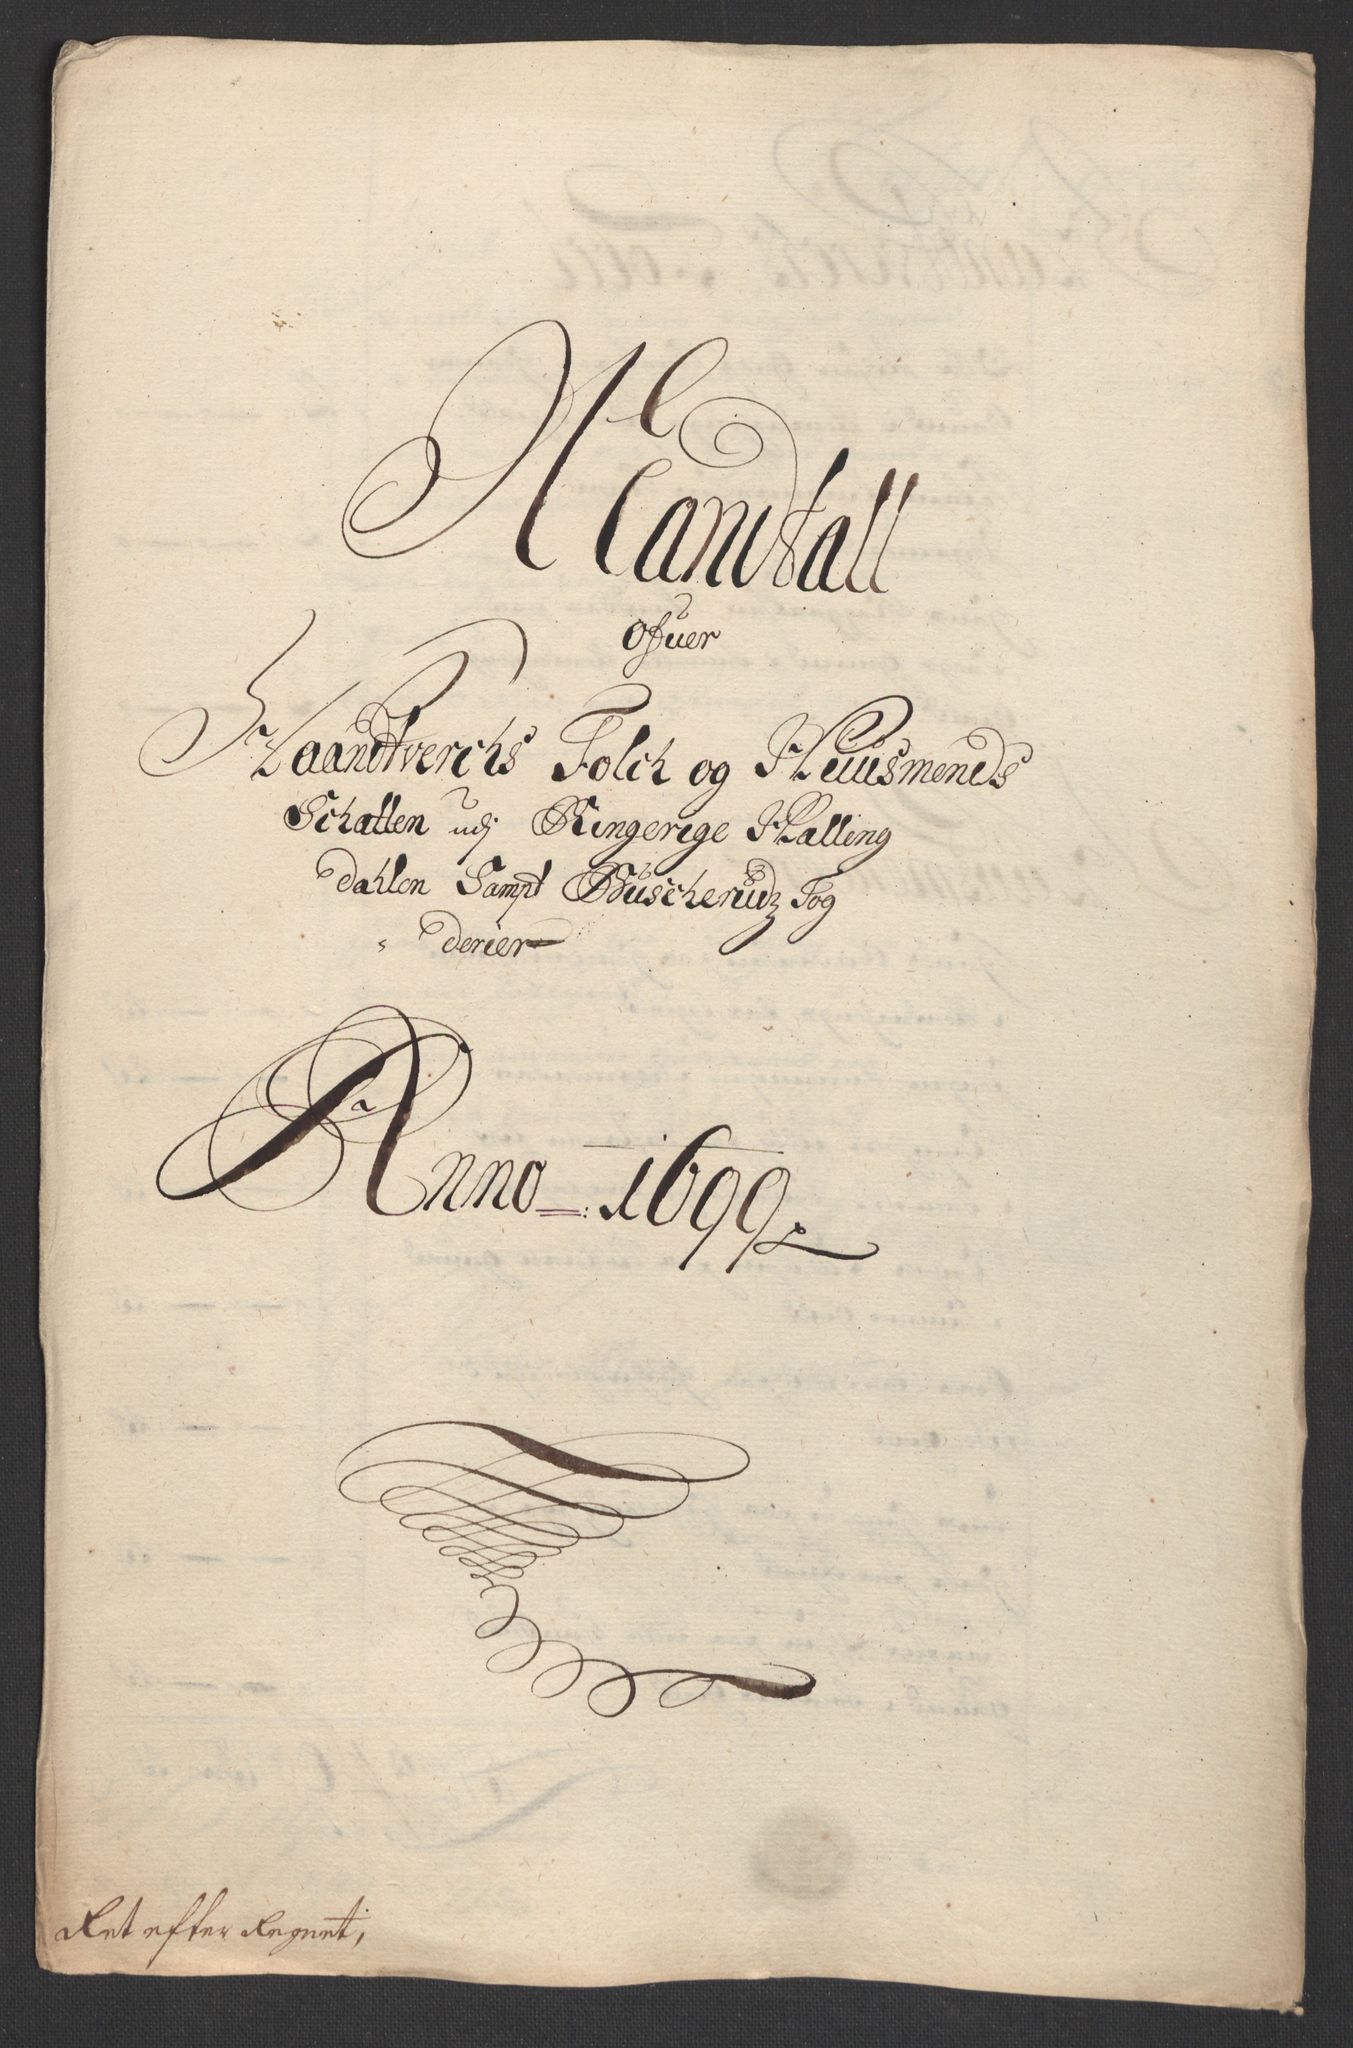 Mandtall
ofuer
Haandtverchs Folch og Huusmends
Schatten udj Ringerige Halling
dahlen Sampt Buscheruds Fog
derier
Anno 1699
Ret efter Regnet,